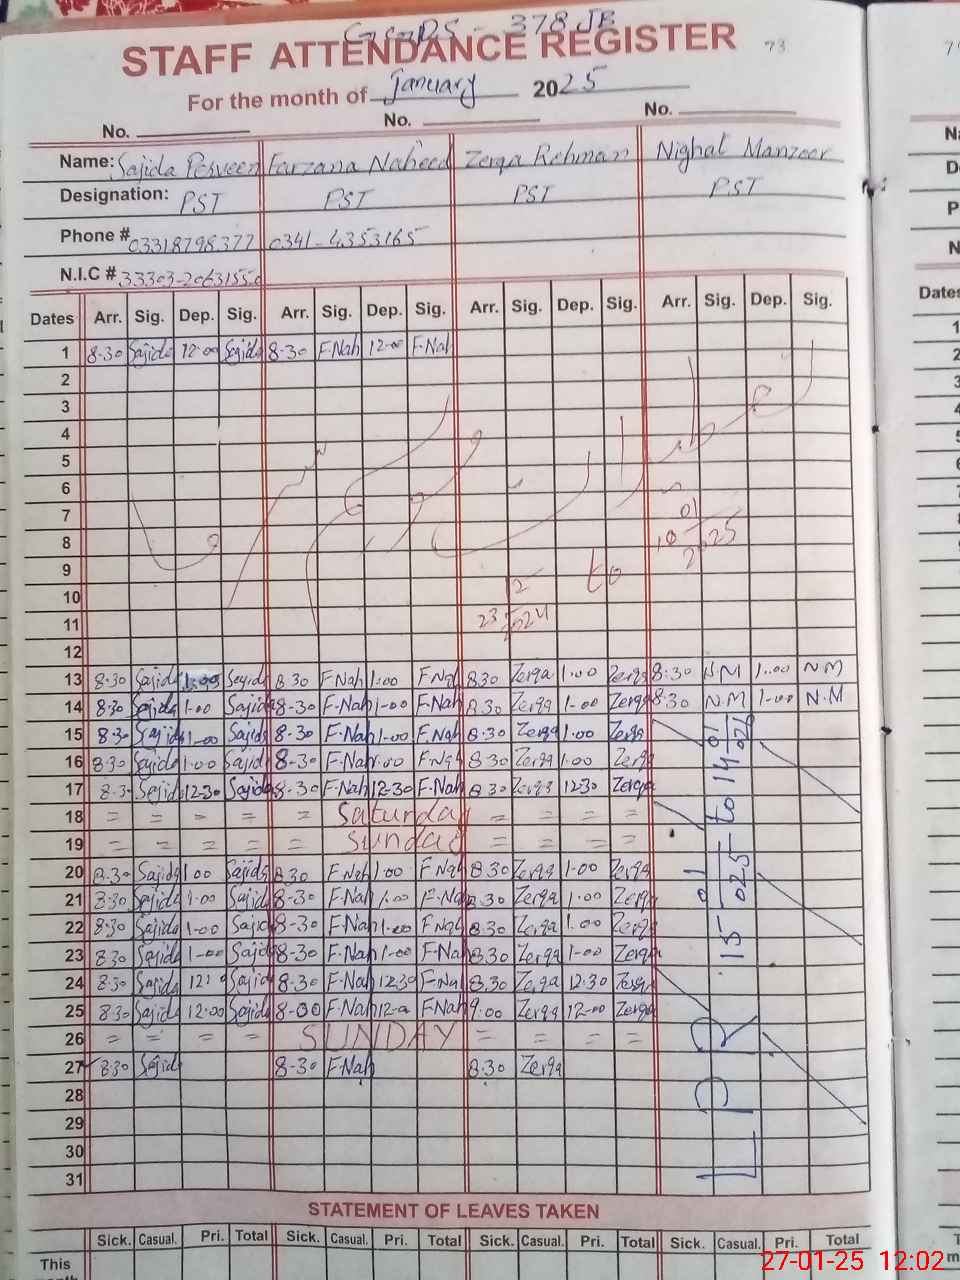 378 JB
STAFF ATTENDANCE REGISTER 73
For the month of January 2025
No. No. No.
Name: Sajida Perveen Farzana Naheed Zerqa Rehman Nighat Manzoor
Designation: PST PST PST PST
Phone # 03318798377 0341-4353165
N.I.C #
Dates Arr. Sig. Dep. Sig. Arr. Sig. Dep. Sig. Arr. Sig. Dep. Sig. Arr. Sig. Dep. Sig.
1 8-30 Sajida 12-00 Sajida 8-30 F-Nah 12-00 F-Nah
2
3
4
5
6
7
8
9
10
11
12
23 12 2024 to 10 01 2025
13 8-30 Sajida Sajida 8 30 F-Nah 1:00 F-Nah 8 30 Zerqa 1-00 Zerqa 8:30 N.M 1-00 N-M
14 8-30 Sajida 1-00 Sajida 8-30 F-Nah 1-00 F-Nah 8.30 Zerqa 1-00 Zerqa 8:30 N.M 1-00 N.M
15 8-30 Sajida 1-00 Sajida 8-30 F-Nah 1-00 F-Nah 8-30 Zerqa 1.00 Zerqa
16 8-30 Sajida 1-00 Sajida 8-30 F-Nah 1-00 F-Nah 8 30 Zerqa 1-00 Zerqa
17 8-30 Sajida 12-30 Sajida 8-30 F-Nah 12-30 F-Nah 8 30 Zerqa 12-30 Zerqa
18 = = = = = Saturday = = = =
19 = = = = = Sunday = = = =
20 8.30 Sajida 1 00 Sajida 8 30 F-Nah 1-00 F-Nah 8.30 Zerqa 1-00 Zerqa
21 8-30 Sajida 1-00 Sajida 8-30 F-Nah 1-00 F-Nah 8.30 Zerqa 1-00 Zerqa
22 8-30 Sajida 1-00 Sajida 8-30 F-Nah 1-00 F-Nah 8-30 Zerqa 1.00 Zerqa
23 8-30 Sajida 1-00 Sajida 8-30 F-Nah 1-00 F-Nah 8.30 Zerqa 1-00 Zerqa
24 8-30 Sajida Sajida 8-30 F-Nah 12-30 F-Nah 8.30 Zerqa 12-30 Zerqa
25 830 Sajida 12:00 Sajida 8-00 F-Nah F-Nah 9:00 Zerqa 12-00 Zerqa
26 = = = = SUNDAY = = = =
27 8-30 Sajida 8-30 F-Nah 8-30 Zerqa
28
29
30
31
LPR 15-01-025 to 14-01-026
STATEMENT OF LEAVES TAKEN
Sick. Casual. Pri. Total Sick. Casual. Pri. Total Sick. Casual. Pri. Total Sick. Casual. Pri. Total
This
27-01-25 12:02